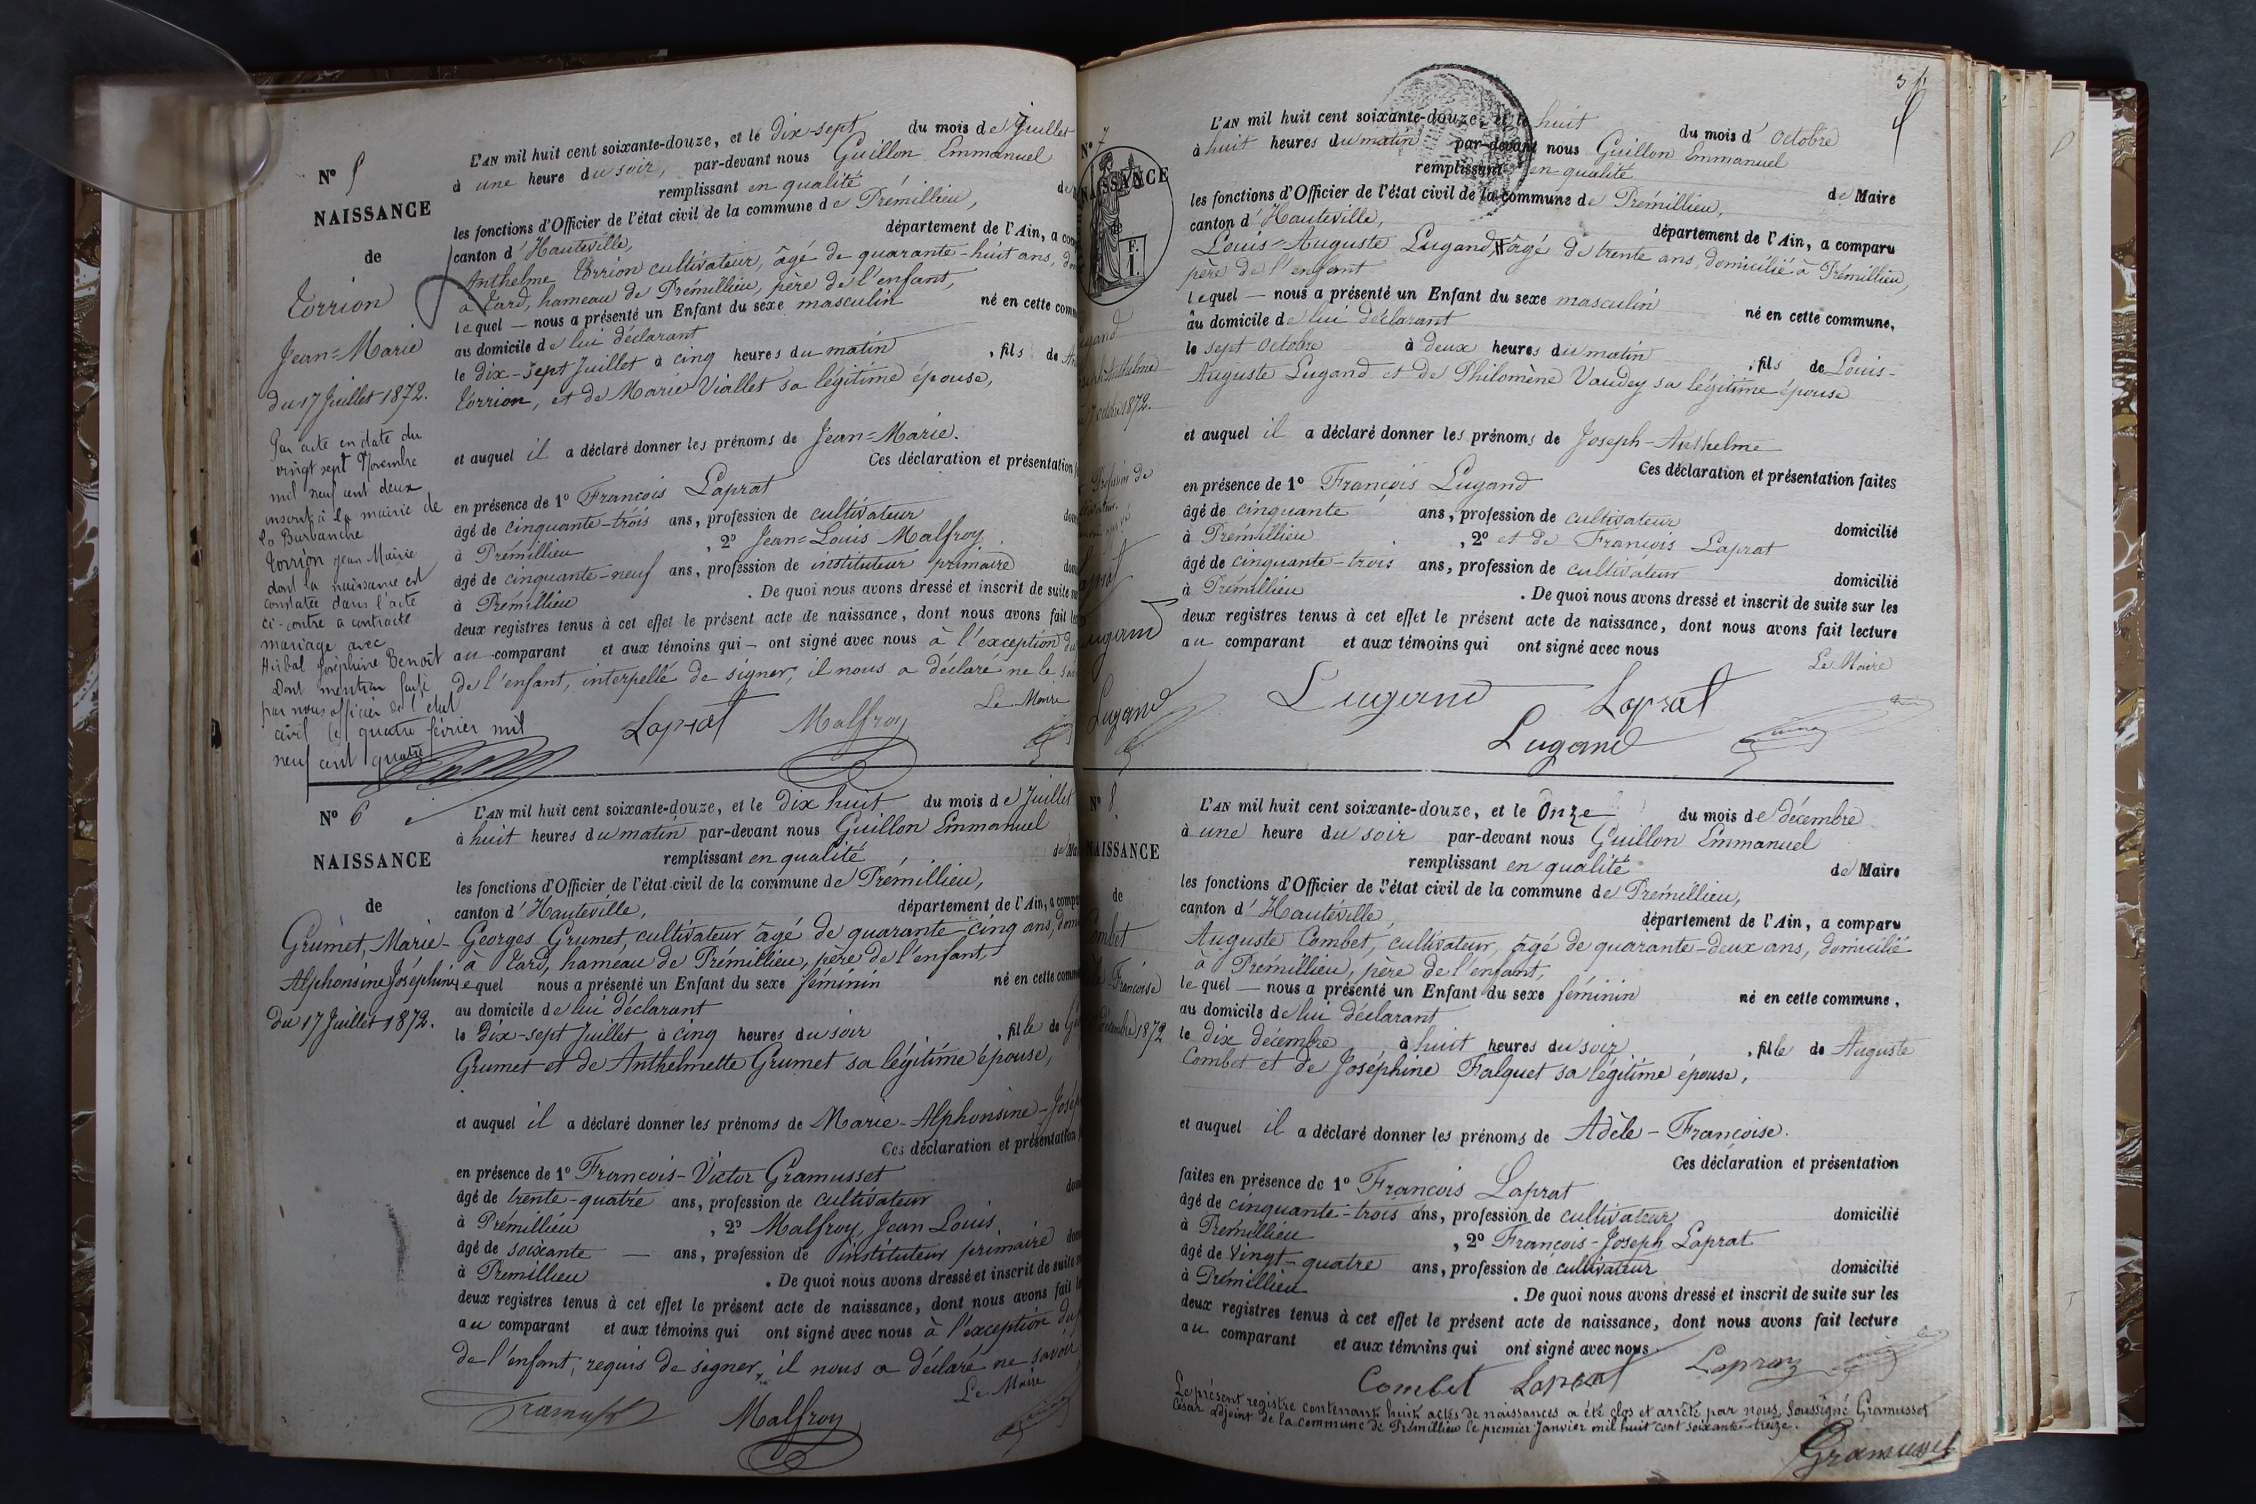 Nº 5
NAISSANCE
de
Torrion
Jean=Marie
du 17 Juillet 1872.
Par acte en date du
vingt sept Novembre
mil neuf cent deux
inscrit à la mairie de
la Burbanche
Torrion Jean Marie
dont la naissance est
constatée dans l'acte
ci-contre a contracté
mariage avec
Joséphine Benoît
Dont mention faite
par nous officier de l'état
civil le quatre février mil
neuf cent quatre
L'AN mil huit cent soixante-douze, et le dix-sept du mois de Juillet
à une heure du soir, par-devant nous Guillon Emmanuel
remplissant en qualité de
les fonctions d'Officier de l'état civil de la commune de Prémillieu,
canton d'Hauteville, département de l'Ain, a
Anthelme Torrion cultivateur, âgé de quarante-huit ans,
à Tard, hameau de Prémillieu, père de l'enfant,
lequel — nous a présenté un Enfant du sexe masculin né en cette
au domicile de lui déclarant
le dix-sept Juillet à cinq heures du matin, fils de
Torrion, et de Marie Viallet sa légitime épouse,
et auquel il a déclaré donner les prénoms de Jean=Marie.
Ces déclaration et présentation
en présence de 1º François Laprat
âgé de cinquante-trois ans, profession de cultivateur
à Prémillieu, 2º Jean=Louis Malfroy
âgé de cinquante-neuf ans, profession de instituteur primaire
à Prémillieu. De quoi nous avons dressé et inscrit de suite
deux registres tenus à cet effet le présent acte de naissance, dont nous avons fait
au comparant et aux témoins qui — ont signé avec nous à l'exception du
de l'enfant, interpellé de signer, il nous a déclaré ne le
Le Maire
Laprat Malfroy
Nº 6
NAISSANCE
de
Grumet, Marie-
Alphonsine Joséphine
du 17 Juillet 1872.
L'AN mil huit cent soixante-douze, et le dix huit du mois de Juillet
à huit heures du matin par-devant nous Guillon Emmanuel
remplissant en qualité de
les fonctions d'Officier de l'état civil de la commune de Prémillieu,
canton d'Hauteville, département de l'Ain, a
Georges Grumet, cultivateur âgé de quarante-cinq ans,
à Tard, hameau de Prémillieu, père de l'enfant,
lequel nous a présenté un Enfant du sexe féminin né en cette
au domicile de lui déclarant
le Dix-sept Juillet à cinq heures du soir, fille de
Grumet et de Anthelmette Grumet sa légitime épouse,
et auquel il a déclaré donner les prénoms de Marie-Alphonsine-
Ces déclaration et présentation
en présence de 1º François-Victor Gramusset
âgé de trente-quatre ans, profession de cultivateur
à Prémillieu, 2º Malfroy, Jean Louis
âgé de soixante — ans, profession de instituteur primaire
à Prémillieu. De quoi nous avons dressé et inscrit de suite
deux registres tenus à cet effet le présent acte de naissance, dont nous avons fait
au comparant et aux témoins qui ont signé avec nous à l'exception du
de l'enfant, requis de signer, il nous a déclaré ne savoir
Le Maire
Malfroy
Nº 7
NAISSANCE
F.
I.
octobre 1872.
Lugand
L'AN mil huit cent soixante-douze, et le huit du mois d'octobre
à huit heures du matin par-devant nous Guillon Emmanuel
remplissant en qualité de Maire
les fonctions d'Officier de l'état civil de la commune de Prémillieu,
canton d'Hauteville, département de l'Ain, a comparu
Louis=Auguste Lugand, âgé de trente ans, domicilié à Prémillieu,
père de l'enfant
lequel — nous a présenté un Enfant du sexe masculin né en cette commune,
au domicile de lui déclarant
le sept octobre à deux heures du matin, fils de Louis-
Auguste Lugand et de Philomène Vaudey sa légitime épouse
et auquel il a déclaré donner les prénoms de Joseph-Anthelme
Ces déclaration et présentation faites
en présence de 1º François Lugand
âgé de cinquante ans, profession de cultivateur domicilié
à Prémillieu, 2º et de François Laprat
âgé de cinquante-trois ans, profession de cultivateur domicilié
à Prémillieu. De quoi nous avons dressé et inscrit de suite sur les
deux registres tenus à cet effet le présent acte de naissance, dont nous avons fait lecture
au comparant et aux témoins qui ont signé avec nous
Le Maire
Lugand Laprat
Lugand
Nº 8
NAISSANCE
de
Combet
Françoise
décembre 1872
L'AN mil huit cent soixante-douze, et le Onze du mois de décembre
à une heure du soir par-devant nous Guillon Emmanuel
remplissant en qualité de Maire
les fonctions d'Officier de l'état civil de la commune de Prémillieu,
canton d'Hauteville, département de l'Ain, a comparu
Auguste Combet, cultivateur, âgé de quarante-deux ans, domicilié
à Prémillieu, père de l'enfant,
lequel — nous a présenté un Enfant du sexe féminin né en cette commune,
au domicile de lui déclarant
le dix décembre à huit heures du soir, fille de Auguste
Combet et de Joséphine Falquet sa légitime épouse,
et auquel il a déclaré donner les prénoms de Adèle-Françoise.
Ces déclaration et présentation
faites en présence de 1º François Laprat
âgé de cinquante-trois ans, profession de cultivateur domicilié
à Prémillieu, 2º François-Joseph Laprat
âgé de Vingt-quatre ans, profession de cultivateur domicilié
à Prémillieu. De quoi nous avons dressé et inscrit de suite sur les
deux registres tenus à cet effet le présent acte de naissance, dont nous avons fait lecture
au comparant et aux témoins qui ont signé avec nous.
Combet Laprat
Le présent registre contenant huit actes de naissances a été clos et arrêté par nous, soussigné Gramusset
César adjoint de la commune de Prémillieu le premier Janvier mil huit cent soixante-treize.
Gramusset